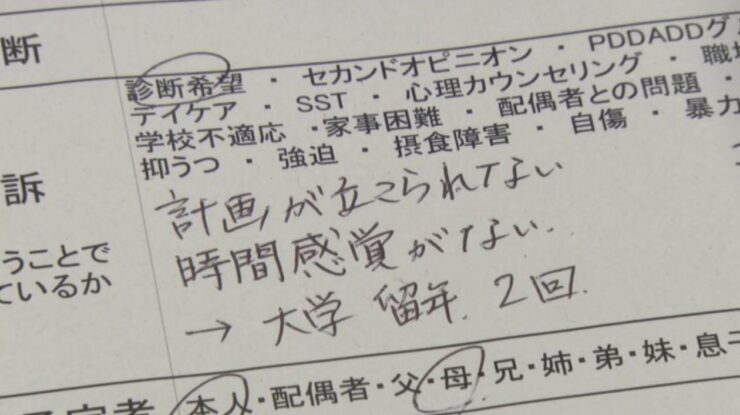 断
診断希望 ・ セカンドオピニオン ・ PDDADDグル
デイケア ・ SST ・ 心理カウンセリング ・ 職場
学校不適応 ・家事困難 ・ 配偶者との問題 ・
抑うつ ・ 強迫 ・ 摂食障害 ・ 自傷 ・ 暴力
訴
計画が立てられてない
時間感覚がない.
→ 大学 留年. 2回.
うことで
ているか
本人・配偶者・父・母・兄・姉・弟・妹・息子